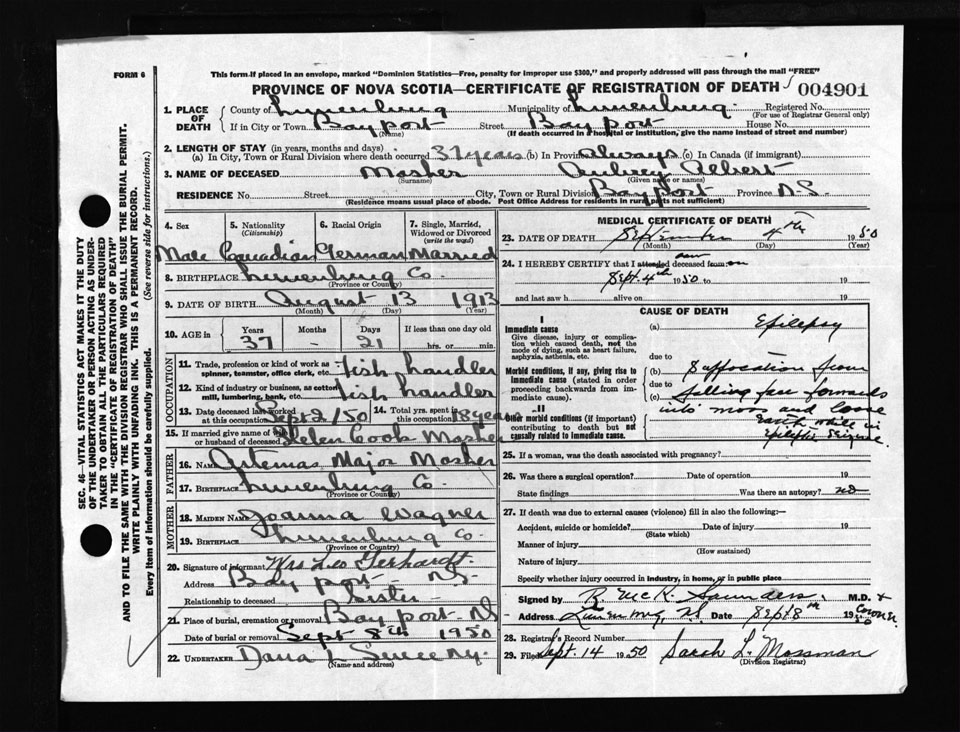 FORM 6
This form if placed in an envelope, marked "Dominion Statistics—Free, penalty for improper use $300," and properly addressed will pass through the mail "FREE"
PROVINCE OF NOVA SCOTIA—CERTIFICATE OF REGISTRATION OF DEATH 004901
1. PLACE OF DEATH County of Lunenburg Municipality of Lunenburg Registered No.
(For use of Registrar General only)
If in City or Town Bayport Street Bay port House No.
(Name) (If death occurred in a hospital or institution, give the name instead of street and number)
2. LENGTH OF STAY (in years, months and days)
(a) In City, Town or Rural Division where death occurred 37 years (b) In Province always (c) In Canada (if immigrant)
3. NAME OF DECEASED Mosher Aubrey Albert
(Surname) (Given name or names)
RESIDENCE No. Street City, Town or Rural Division Bayport Province N-S
(Residence means usual place of abode. Post Office Address for residents in rural parts not sufficient)
4. Sex 5. Nationality (Citizenship) 6. Racial Origin 7. Single, Married, Widowed or Divorced (write the word)
Male Canadian German Married
8. BIRTHPLACE Lunenburg Co.
(Province or County)
9. DATE OF BIRTH August 13 1913
(Month) (Day) (Year)
10. AGE in Years Months Days If less than one day old
37 - 21 hrs. or min.
OCCUPATION
11. Trade, profession or kind of work as spinner, teamster, office clerk, etc. Fish handler
12. Kind of industry or business, as cotton mill, lumbering, bank, etc. Fish handler
13. Date deceased last worked at this occupation Sept 2/50 14. Total yrs. spent in this occupation 18 years
15. If married give name of wife or husband of deceased Helen Cook Mosher
FATHER
16. Name Artemas Major Mosher
17. Birthplace Lunenburg Co.
(Province or County)
MOTHER
18. Maiden Name Joanna Wagner
19. Birthplace Lunenburg Co
(Province or County)
20. Signature of informant Mrs Leo Gerhardt
Address Bay port N.S.
Relationship to deceased Sister
21. Place of burial, cremation or removal Bay port N S
Date of burial or removal Sept 8th 1950
22. UNDERTAKER Dana L Sweeny.
(Name and address)
MEDICAL CERTIFICATE OF DEATH
23. DATE OF DEATH September 4th 1950
(Month) (Day) (Year)
24. I HEREBY CERTIFY that I attended saw deceased from on
Sept. 4th 1950 to 19
and last saw h alive on 19
CAUSE OF DEATH
I
Immediate cause
Give disease, injury or complication which caused death, not the mode of dying, such as heart failure, asphyxia, asthenia, etc.
(a) Epilepsy
due to
Morbid conditions, if any, giving rise to immediate cause (stated in order proceeding backwards from immediate cause).
(b) Suffocation from
due to
(c) falling face forwards
into moss and loose
earth while in
epileptic seizure.
II
Other morbid conditions (if important) contributing to death but not causally related to immediate cause.
25. If a woman, was the death associated with pregnancy?
26. Was there a surgical operation? Date of operation 19
State findings Was there an autopsy? no
27. If death was due to external causes (violence) fill in also the following:—
Accident, suicide or homicide? Date of injury 19
(State which)
Manner of injury
Nature of injury
Specify whether injury occurred in industry, in home, or in public place
Signed by R. McK. Saunders M.D. + Coroner
Address Lunenburg, N.S. Date Sept 8th 1950
28. Registrar's Record Number
29. Filed Sept. 14 1950 Sarah L. Mossman
(Division Registrar)
SEC. 46—VITAL STATISTICS ACT MAKES IT THE DUTY
OF THE UNDERTAKER OR PERSON ACTING AS UNDER-
TAKER TO OBTAIN ALL THE PARTICULARS REQUIRED
IN THE "CERTIFICATE OF REGISTRATION OF DEATH"
AND TO FILE THE SAME WITH THE DIVISION REGISTRAR WHO SHALL ISSUE THE BURIAL PERMIT.
WRITE PLAINLY WITH UNFADING INK. THIS IS A PERMANENT RECORD.
Every item of information should be carefully supplied. (See reverse side for instructions.)